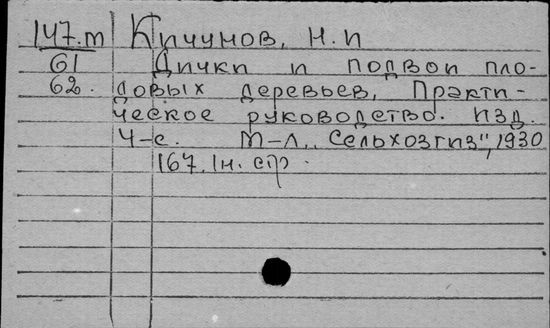 147.м Кичунов, Н.И
61 Дички и подвои пло-
62. довых деревьев, Практи-
ческое руководство. изд.
4-е. М-Л. "Сельхозгиз", 1930
167. 1н. стр.